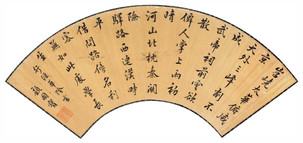 岧嶢太華俯
咸京
天外三峰削不
成武
帝祠前雲欲
散仙
人掌上雨初
晴
河山北枕秦關
險
驛路西連漢畤
平借
問路傍名利
客無
如此處學長
生行經華陰